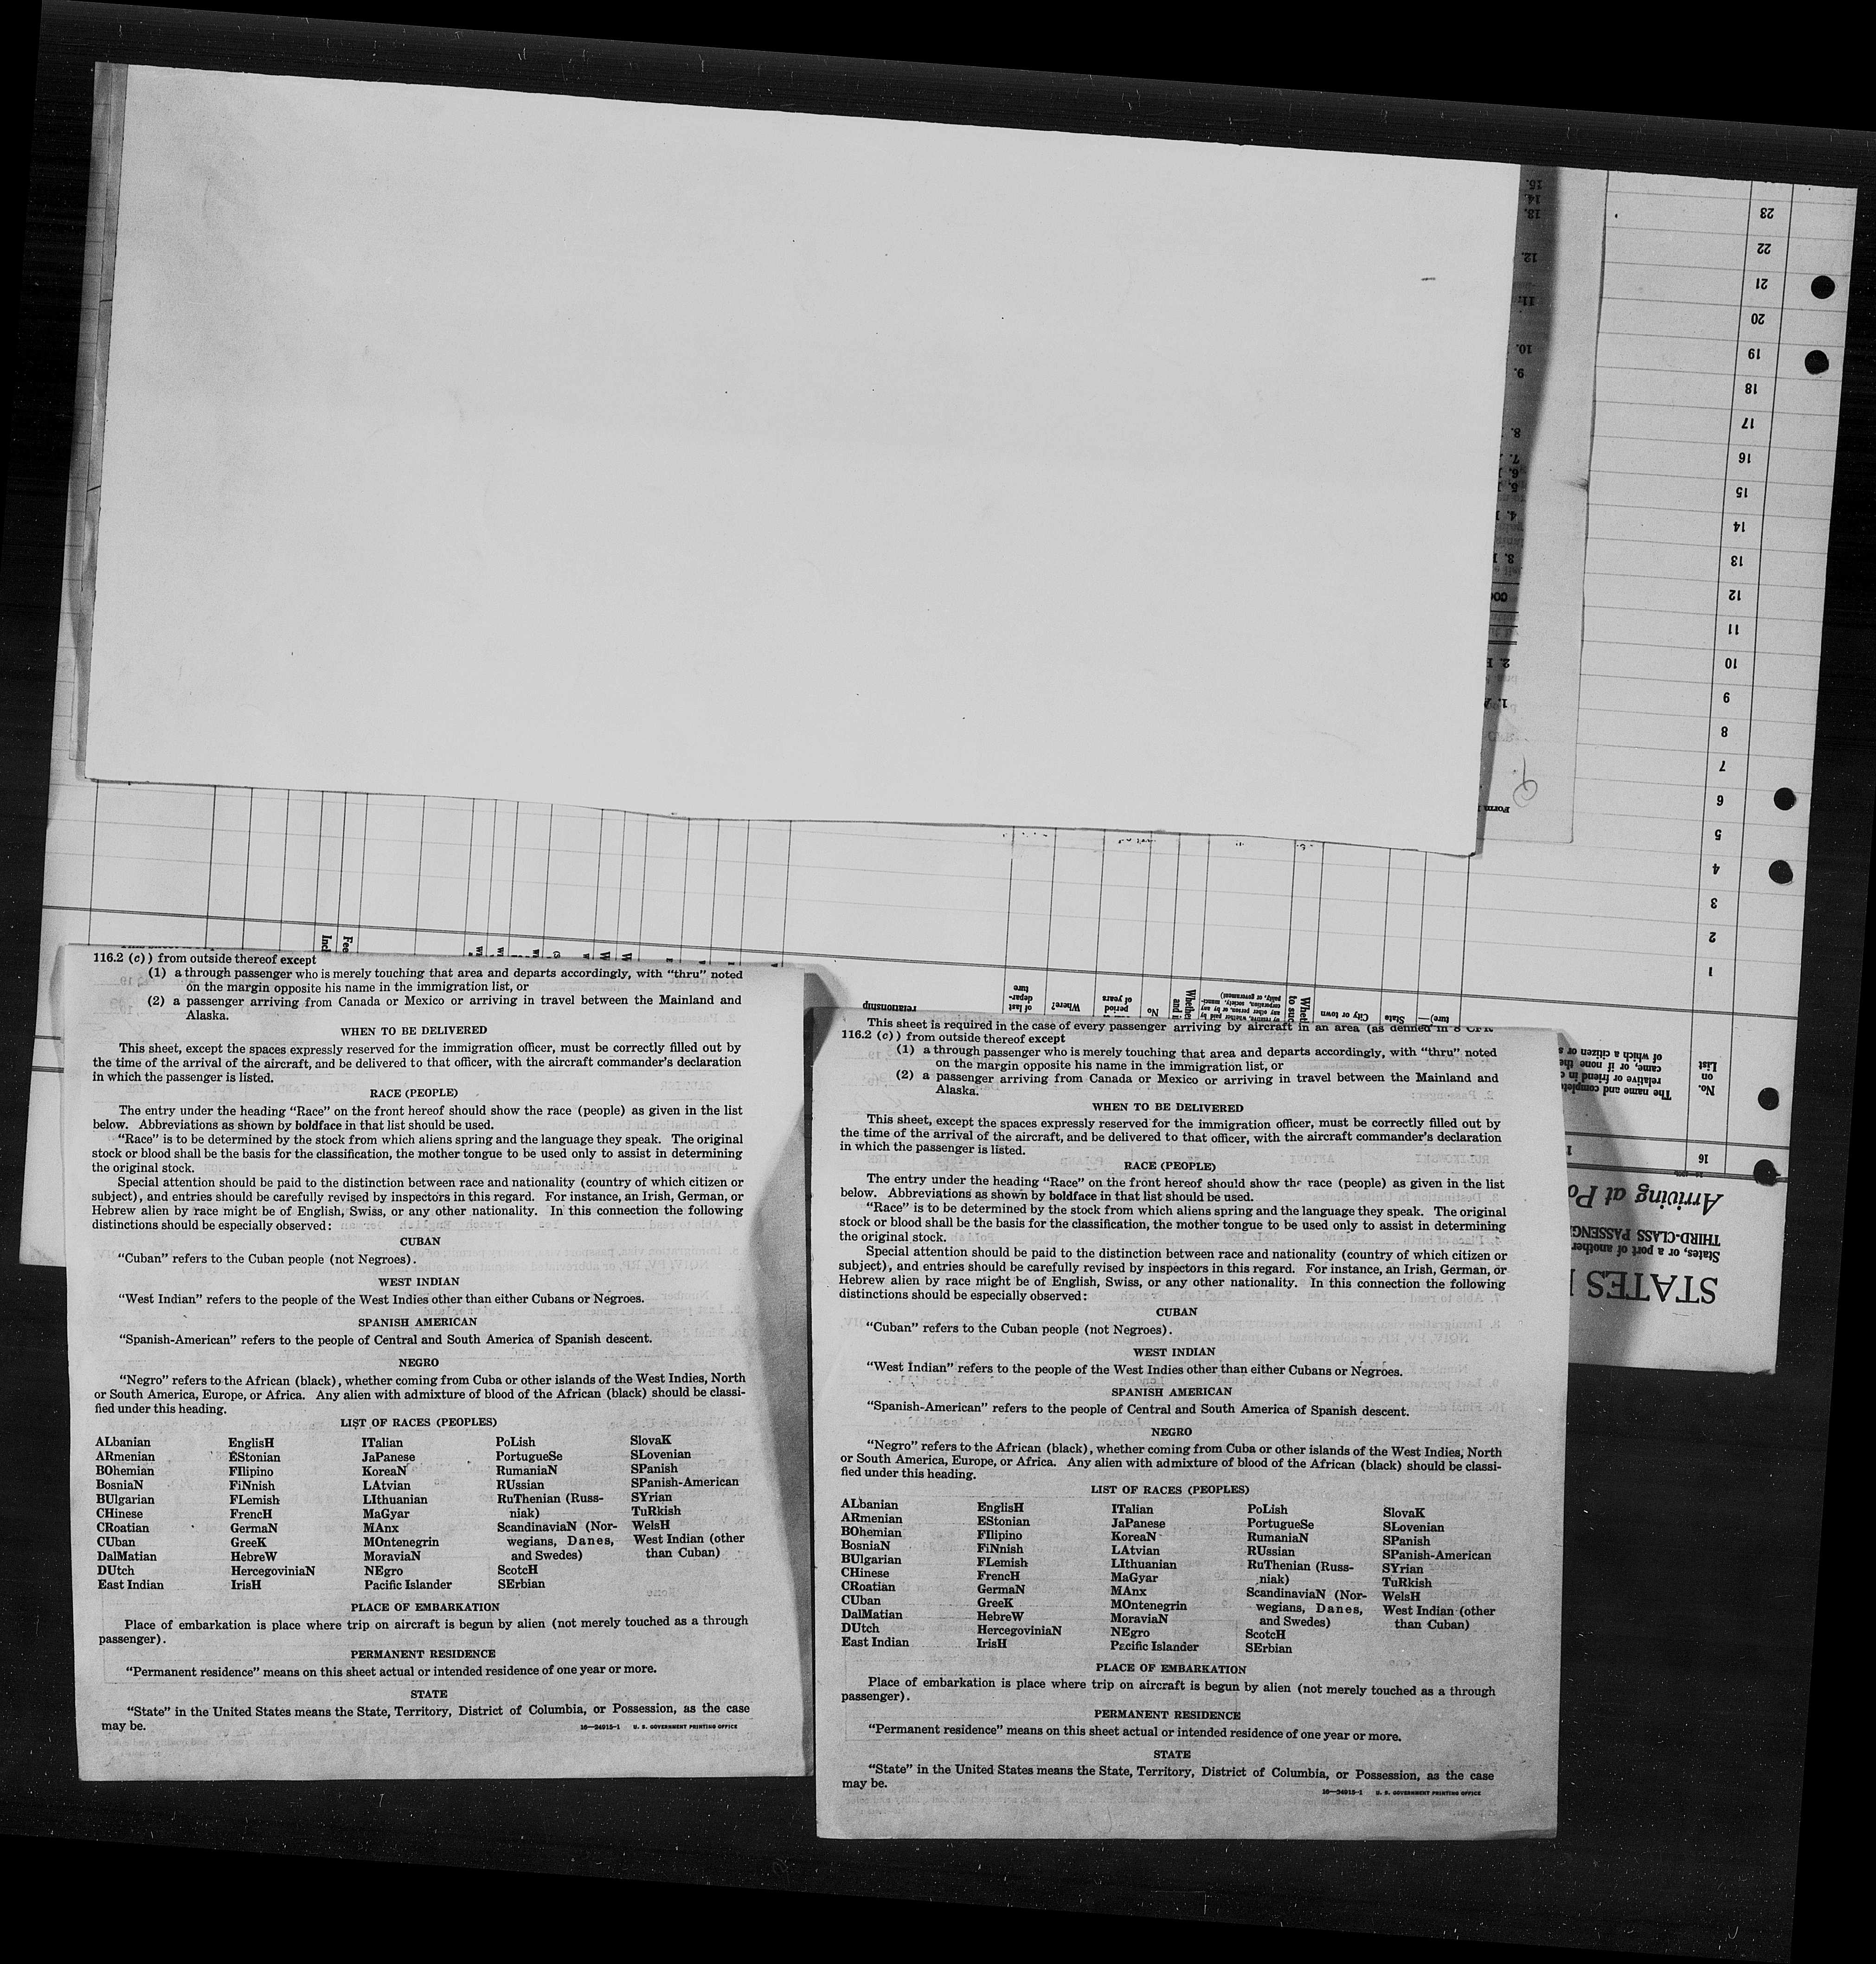 116.2 (c)) from outside thereof except
(1) a through passenger who is merely touching that area and departs accordingly, with “thru” noted
on the margin opposite his name in the immigration list, or
(2) a passenger arriving from Canada or Mexico or arriving in travel between the Mainland and
Alaska.
WHEN TO BE DELIVERED
This sheet, except the spaces expressly reserved for the immigration officer, must be correctly filled out by
the time of the arrival of the aircraft, and be delivered to that officer, with the aircraft commander’s declaration
in which the passenger is listed.
RACE (PEOPLE)
The entry under the heading “Race” on the front hereof should show the race (people) as given in the list
below. Abbreviations as shown by boldface in that list should be used.
“Race” is to be determined by the stock from which aliens spring and the language they speak. The original
stock or blood shall be the basis for the classification, the mother tongue to be used only to assist in determining
the original stock.
Special attention should be paid to the distinction between race and nationality (country of which citizen or
subject), and entries should be carefully revised by inspectors in this regard. For instance, an Irish, German, or
Hebrew alien by race might be of English, Swiss, or any other nationality. In this connection the following
distinctions should be especially observed:
CUBAN
“Cuban” refers to the Cuban people (not Negroes).
WEST INDIAN
“West Indian” refers to the people of the West Indies other than either Cubans or Negroes.
SPANISH AMERICAN
“Spanish-American” refers to the people of Central and South America of Spanish descent.
NEGRO
“Negro” refers to the African (black), whether coming from Cuba or other islands of the West Indies, North
or South America, Europe, or Africa. Any alien with admixture of blood of the African (black) should be classi-
fied under this heading.
LIST OF RACES (PEOPLES)
ALbanian
ARmenian
BOhemian
BosniaN
BUlgarian
CHinese
CRoatian
CUban
DalMatian
DUtch
East Indian
EnglisH
EStonian
FIlipino
FiNnish
FLemish
FrencH
GermaN
GreeK
HebreW
HercegoviniaN
IrisH
ITalian
JaPanese
KoreaN
LAtvian
LIthuanian
MaGyar
MAnx
MOntenegrin
MoraviaN
NEgro
Pacific Islander
PoLish
PortugueSe
RumaniaN
RUssian
RuThenian (Russ-
niak)
ScandinaviaN (Nor-
wegians, Danes,
and Swedes)
ScotcH
SErbian
SlovaK
SLovenian
SPanish
SPanish-American
SYrian
TuRkish
WelsH
West Indian (other
than Cuban)
PLACE OF EMBARKATION
Place of embarkation is place where trip on aircraft is begun by alien (not merely touched as a through
passenger).
PERMANENT RESIDENCE
“Permanent residence” means on this sheet actual or intended residence of one year or more.
STATE
“State” in the United States means the State, Territory, District of Columbia, or Possession, as the case
may be.
16—24915-1 U. S. GOVERNMENT PRINTING OFFICE
This sheet is required in the case of every passenger arriving by aircraft in an area (as defined in 8 CFR
116.2 (c)) from outside thereof except
(1) a through passenger who is merely touching that area and departs accordingly, with “thru” noted
on the margin opposite his name in the immigration list, or
(2) a passenger arriving from Canada or Mexico or arriving in travel between the Mainland and
Alaska.
WHEN TO BE DELIVERED
This sheet, except the spaces expressly reserved for the immigration officer, must be correctly filled out by
the time of the arrival of the aircraft, and be delivered to that officer, with the aircraft commander’s declaration
in which the passenger is listed.
RACE (PEOPLE)
The entry under the heading “Race” on the front hereof should show the race (people) as given in the list
below. Abbreviations as shown by boldface in that list should be used.
“Race” is to be determined by the stock from which aliens spring and the language they speak. The original
stock or blood shall be the basis for the classification, the mother tongue to be used only to assist in determining
the original stock.
Special attention should be paid to the distinction between race and nationality (country of which citizen or
subject), and entries should be carefully revised by inspectors in this regard. For instance, an Irish, German, or
Hebrew alien by race might be of English, Swiss, or any other nationality. In this connection the following
distinctions should be especially observed:
CUBAN
“Cuban” refers to the Cuban people (not Negroes).
WEST INDIAN
“West Indian” refers to the people of the West Indies other than either Cubans or Negroes.
SPANISH AMERICAN
“Spanish-American” refers to the people of Central and South America of Spanish descent.
NEGRO
“Negro” refers to the African (black), whether coming from Cuba or other islands of the West Indies, North
or South America, Europe, or Africa. Any alien with admixture of blood of the African (black) should be classi-
fied under this heading.
LIST OF RACES (PEOPLES)
ALbanian
ARmenian
BOhemian
BosniaN
BUlgarian
CHinese
CRoatian
CUban
DalMatian
DUtch
East Indian
EnglisH
EStonian
FIlipino
FiNnish
FLemish
FrencH
GermaN
GreeK
HebreW
HercegoviniaN
IrisH
ITalian
JaPanese
KoreaN
LAtvian
LIthuanian
MaGyar
MAnx
MOntenegrin
MoraviaN
NEgro
Pacific Islander
PoLish
PortugueSe
RumaniaN
RUssian
RuThenian (Russ-
niak)
ScandinaviaN (Nor-
wegians, Danes,
and Swedes)
ScotcH
SErbian
SlovaK
SLovenian
SPanish
SPanish-American
SYrian
TuRkish
WelsH
West Indian (other
than Cuban)
PLACE OF EMBARKATION
Place of embarkation is place where trip on aircraft is begun by alien (not merely touched as a through
passenger).
PERMANENT RESIDENCE
“Permanent residence” means on this sheet actual or intended residence of one year or more.
STATE
“State” in the United States means the State, Territory, District of Columbia, or Possession, as the case
may be.
16—24915-1 U. S. GOVERNMENT PRINTING OFFICE
STATES
States, or a port of another
THIRD-CLASS PASSENG
Arriving at Po
16
No.
on
List
The name and complet
relative or friend in c
came, or if none the
of which a citizen or s
1
2
3
4
5
6
7
8
9
10
11
12
13
14
15
16
17
18
19
20
21
22
23
ture)—
State
City or town
Whet
to suc
Whethe
and i
No
period
of years
Where?
of last
depar-
ture
relationship
Fee
Incl
Form
1.
2.
3.
4.
5.
6.
7.
8.
9.
10.
11.
12.
13.
14.
15.